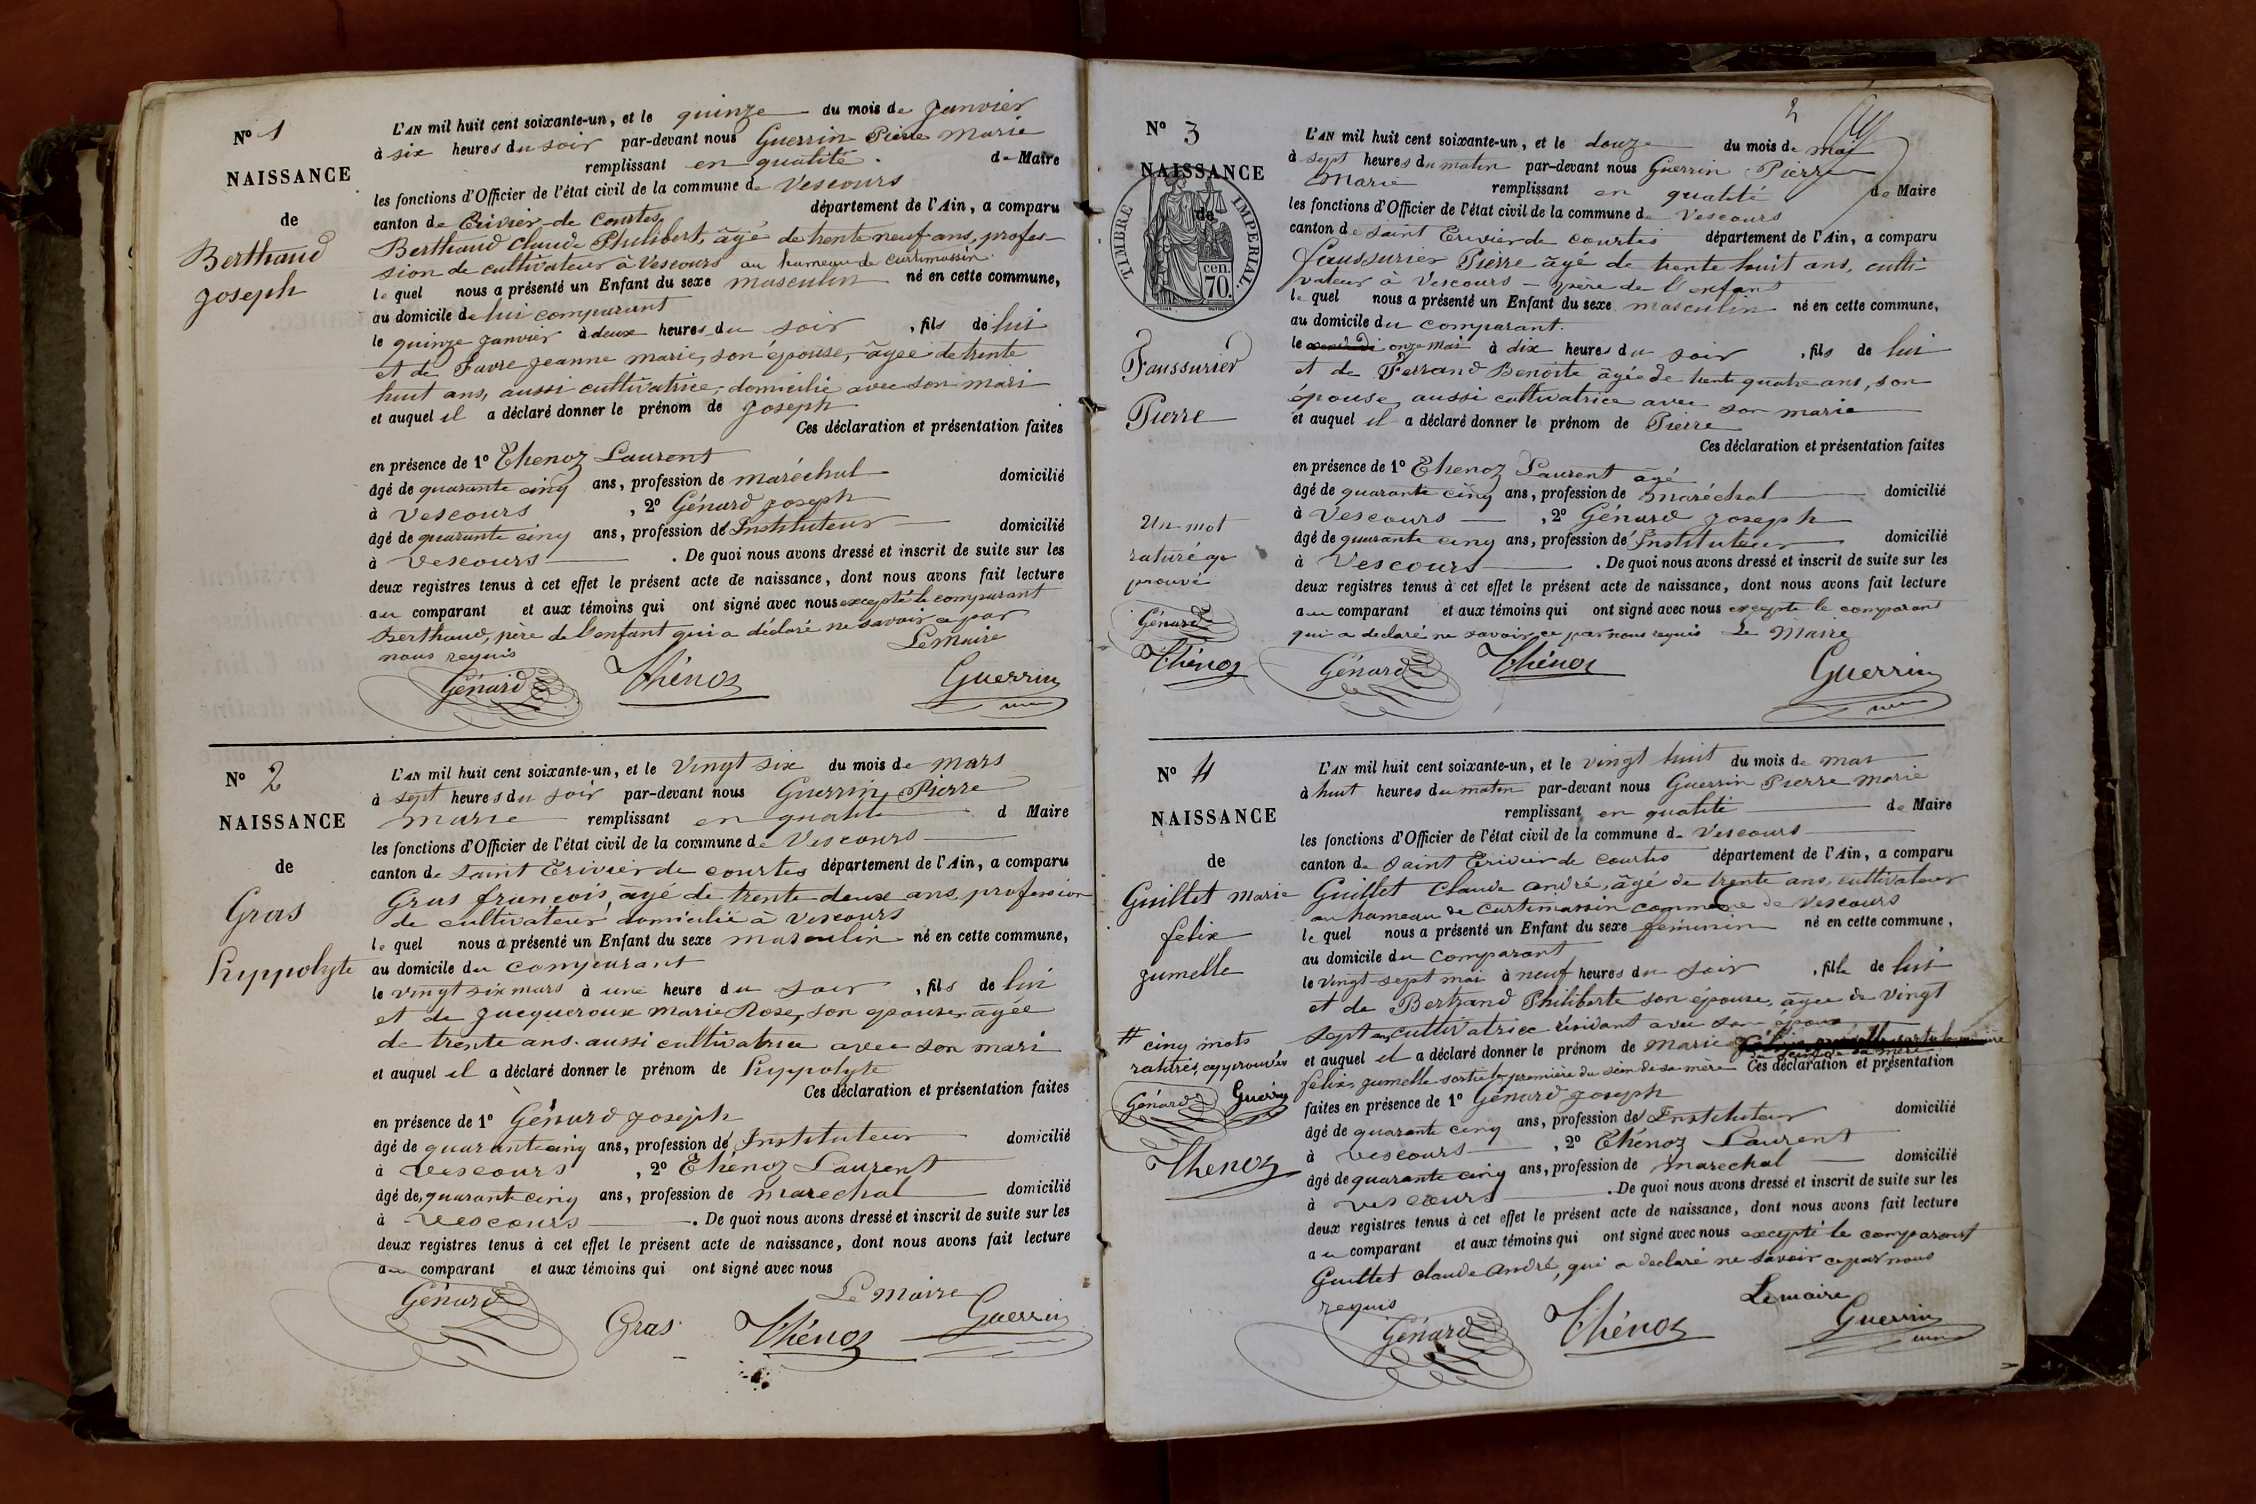 N° 1
NAISSANCE
de
Berthaud
Joseph
L'AN mil huit cent soixante-un, et le quinze du mois de Janvier
à six heures du soir par-devant nous Guerrin Pierre Marie
remplissant en qualité de Maire
les fonctions d'Officier de l'état civil de la commune de Vescours
canton de Trivier de Courtes département de l'Ain, a comparu
Berthaud Claude Philibert, âgé de trente neuf ans, profes-
sion de cultivateur à Vescours au hameau de Curtimassin
le quel nous a présenté un Enfant du sexe masculin né en cette commune,
au domicile de lui comparant
le quinze janvier à deux heures du soir, fils de lui
et de Favre Jeanne Marie, son épouse, âgée de trente
huit ans, aussi cultivatrice, domicilié avec son mari
et auquel il a déclaré donner le prénom de Joseph
Ces déclaration et présentation faites
en présence de 1° Thenoz Laurent
âgé de quarante cinq ans, profession de maréchal domicilié
à Vescours, 2° Génard Joseph
âgé de quarante cinq ans, profession d'Instituteur domicilié
à Vescours. De quoi nous avons dressé et inscrit de suite sur les
deux registres tenus à cet effet le présent acte de naissance, dont nous avons fait lecture
au comparant et aux témoins qui ont signé avec nous excepté le comparant
Berthaud, père de l'enfant qui a déclaré ne savoir ce par
nous requis Le Maire
Génard Thénoz Guerrin
N° 2
NAISSANCE
de
Gras
Hyppolyte
L'AN mil huit cent soixante-un, et le Vingt six du mois de Mars
à sept heures du soir par-devant nous Guerrin Pierre
Marie remplissant en qualité d Maire
les fonctions d'Officier de l'état civil de la commune de Vescours
canton de Saint Trivier de courtes département de l'Ain, a comparu
Gras françois, âgé de trente deux ans, profession
de cultivateur domicilié à Vescours
le quel nous a présenté un Enfant du sexe masculin né en cette commune,
au domicile du comparant
le vingt six mars à une heure du soir, fils de lui
et de Jacqueroux Marie Rose, son epouse, âgée
de trente ans aussi cultivatrice avec son mari
et auquel il a déclaré donner le prénom de Hyppolyte
Ces déclaration et présentation faites
en présence de 1° Génard Joseph
âgé de quarante cinq ans, profession d'Instituteur domicilié
à Vescours, 2° Thénoz Laurent
âgé de quarante cinq ans, profession de marechal domicilié
à Vescours. De quoi nous avons dressé et inscrit de suite sur les
deux registres tenus à cet effet le présent acte de naissance, dont nous avons fait lecture
au comparant et aux témoins qui ont signé avec nous
Le Maire
Génard Gras Thénoz Guerrin
2
N° 3
NAISSANCE
de
TIMBRE IMPERIAL
70 cen.
Faussurier
Pierre
Un mot
raturé ap
prouvé
Génard
Thénoz
L'AN mil huit cent soixante-un, et le douze du mois de mai
à sept heures du matin par-devant nous Guerrin Pierre
Marie remplissant en qualité de Maire
les fonctions d'Officier de l'état civil de la commune de Vescours
canton de Saint Trivier de courtes département de l'Ain, a comparu
Faussurier Pierre âgé de trente huit ans, culti-
vateur à Vescours - père de l'enfant
le quel nous a présenté un Enfant du sexe masculin né en cette commune,
au domicile du comparant.
le onze Mai à dix heures du soir, fils de lui
et de Ferrand Benoite âgée de trente quatre ans, son
épouse, aussi cultivatrice avec son marie
et auquel il a déclaré donner le prénom de Pierre
Ces déclaration et présentation faites
en présence de 1° Thenoz Laurent âgé
âgé de quarante cinq ans, profession de maréchal domicilié
à Vescours, 2° Génard Joseph
âgé de quarante cinq ans, profession d'Instituteur domicilié
à Vescours. De quoi nous avons dressé et inscrit de suite sur les
deux registres tenus à cet effet le présent acte de naissance, dont nous avons fait lecture
au comparant et aux témoins qui ont signé avec nous excepté le comparant
qui a declaré ne savoir, ce par nous requis Le Maire
Génard Thénoz Guerrin
N° 4
NAISSANCE
de
Guillet Marie
felix
jumelle
# cinq mots
raturés approuvés
Génard Guerrin
Thenoz
L'AN mil huit cent soixante-un, et le vingt huit du mois de mai
à huit heures du matin par-devant nous Guerrin Pierre Marie
remplissant en qualité de Maire
les fonctions d'Officier de l'état civil de la commune de Vescours
canton de Saint Trivier de courtes département de l'Ain, a comparu
Guillet Claude André, âgé de trente ans, cultivateur
au hameau de Curtimassin commune de Vescours
le quel nous a présenté un Enfant du sexe féminin né en cette commune,
au domicile du comparant
le Vingt-sept mai à neuf heures du soir, fille de lui
et de Bertrand Philiberte son épouse, âgée de vingt
sept ans cultivatrice résidant avec son époux
et auquel il a déclaré donner le prénom de Marie
felix, jumelle sortie la première du sein de sa mère Ces déclaration et présentation
faites en présence de 1° Génard Joseph
âgé de quarante cinq ans, profession d'Instituteur domicilié
à Vescours, 2° Thénoz Laurent
âgé de quarante cinq ans, profession de marechal domicilié
à Vescours. De quoi nous avons dressé et inscrit de suite sur les
deux registres tenus à cet effet le présent acte de naissance, dont nous avons fait lecture
au comparant et aux témoins qui ont signé avec nous excepté le comparant
Guillet claude André, qui a declaré ne savoir ce par nous
requis Le maire
Génard Thénoz Guerrin